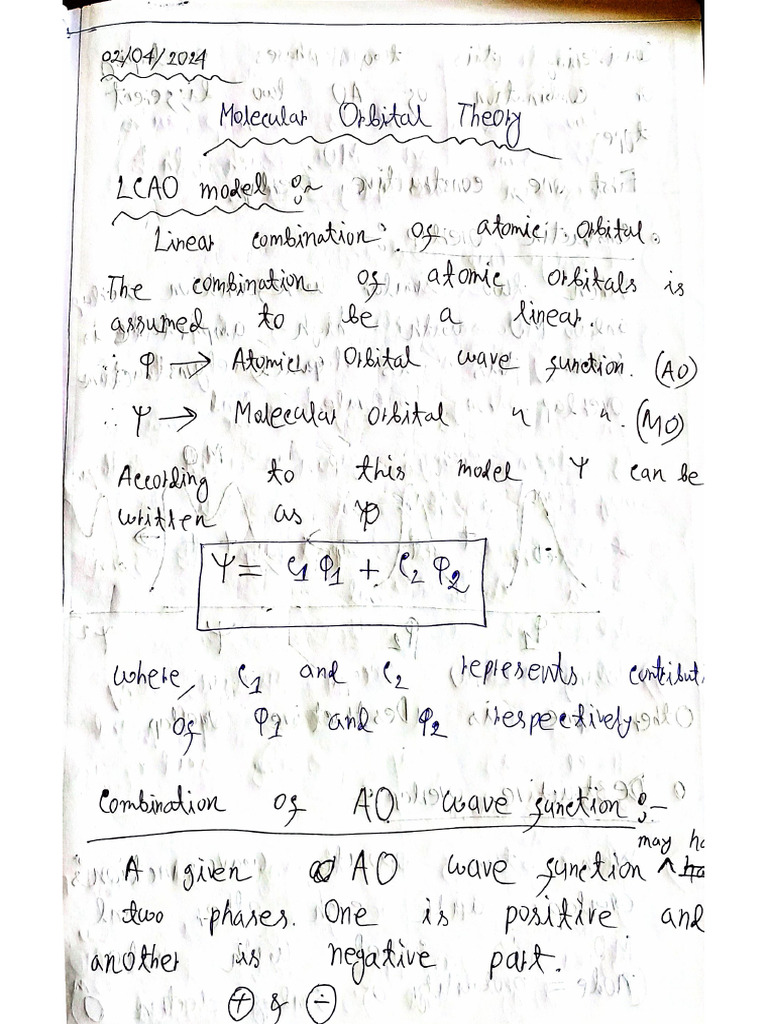 02/04/2024
Molecular Orbital Theory
LCAO model :~
Linear combination of atomic orbital.
The combination of atomic orbitals is
assumed to be a linear.
∴ φ → Atomic Orbital wave function. (AO)
∴ ψ → Molecular Orbital " ". (MO)
According to this model ψ can be
written as ψ
ψ = C1 φ1 + C2 φ2
where, C1 and C2 represents contribut
of φ1 and φ2 respectively.
Combination of AO wave function :-
may ha
A given AO wave function ^
two phases. One is positive and
another is negative part.
⊕ & ⊖